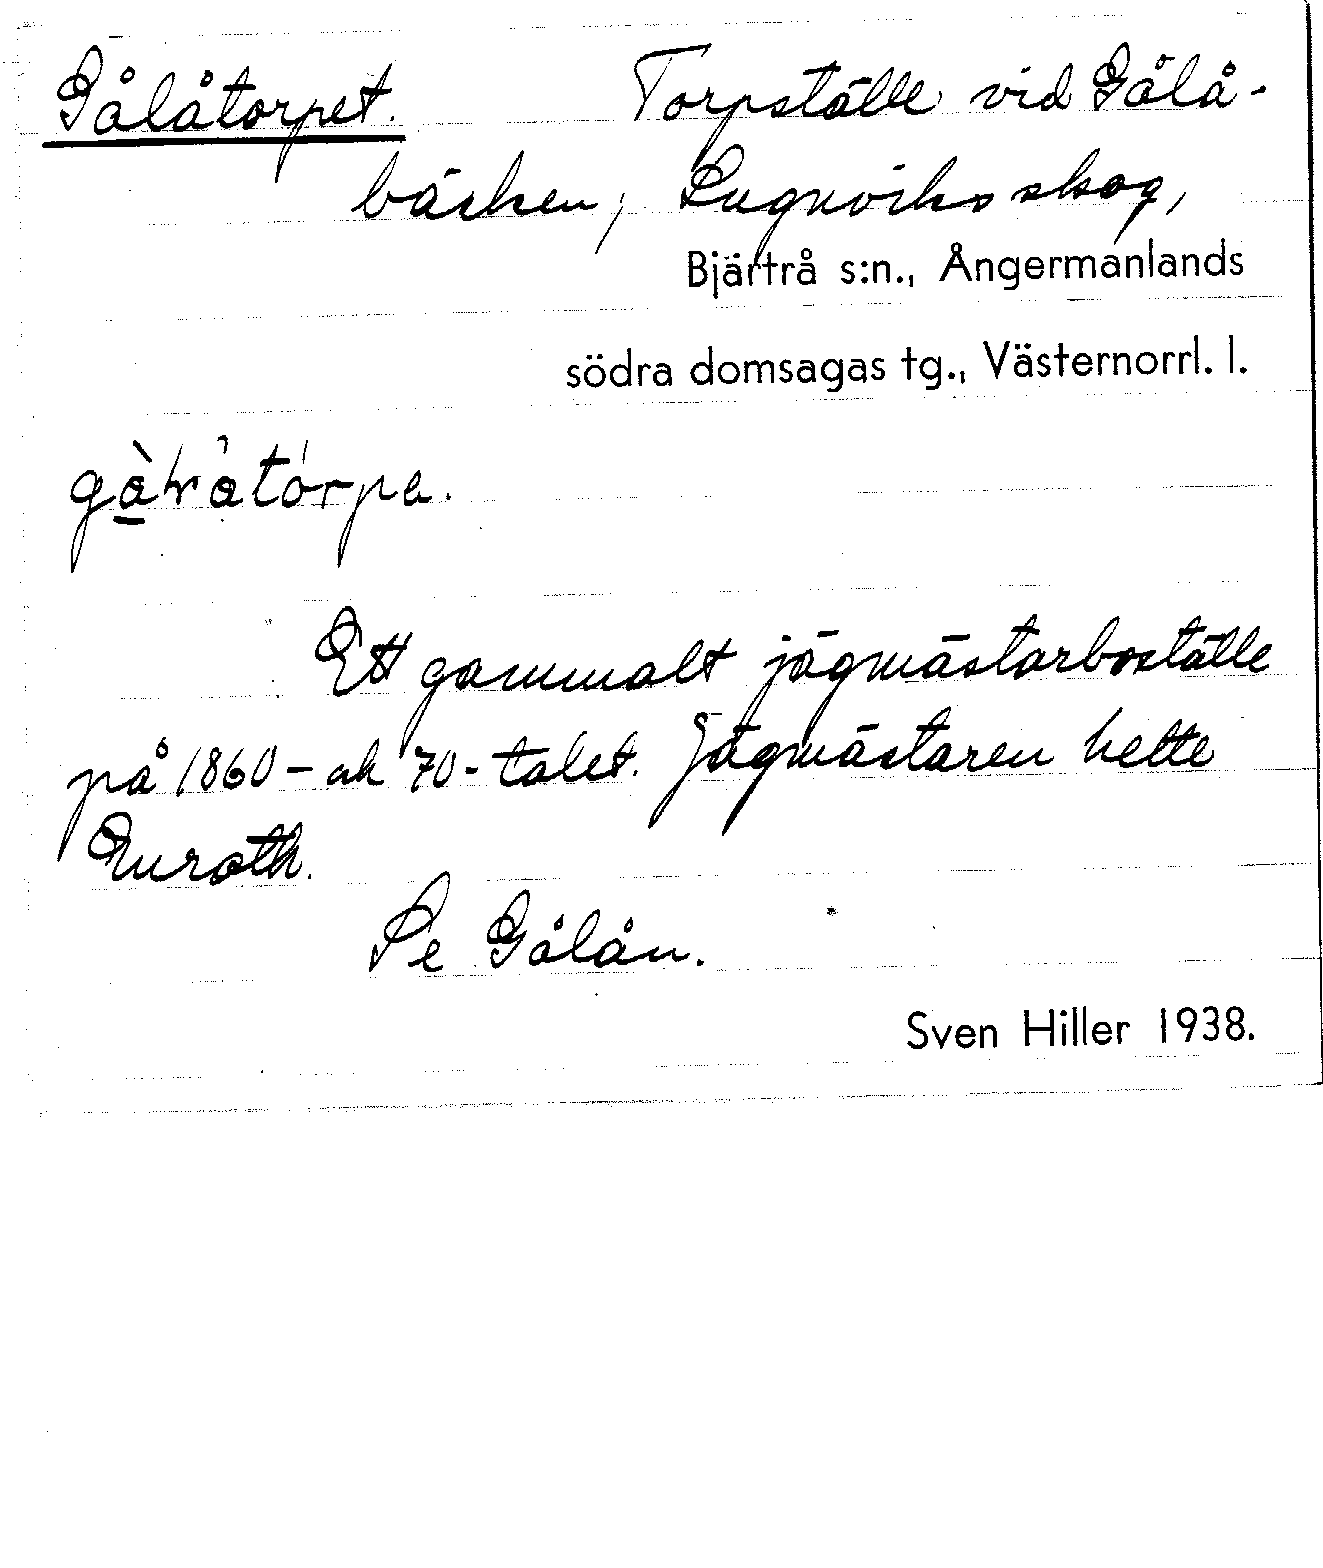 Gålåtorpet. Torpställe vid Gålå-
bäcken, Lugnviks skog,
Bjärtrå s:n., Ångermanlands
södra domsagas tg., Västernorrl. l.
Ett gammalt jägmästarboställe
på 1860- ok 70-talet. Jägmästaren hette
Enroth.
Se Gålån.
Sven Hiller 1938.